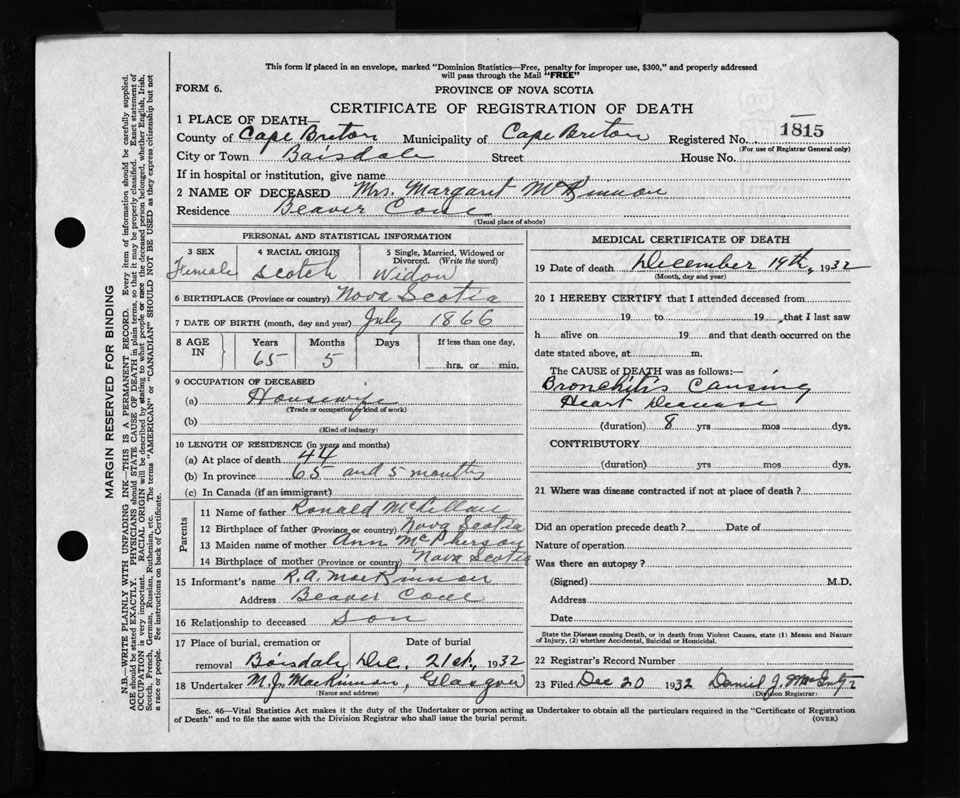 This form if placed in an envelope, marked "Dominion Statistics—Free, penalty for improper use, $300," and properly addressed
will pass through the Mail "FREE"
FORM 6.
PROVINCE OF NOVA SCOTIA
CERTIFICATE OF REGISTRATION OF DEATH
1 PLACE OF DEATH—
County of Cape Breton Municipality of Cape Breton Registered No. 1815
(For use of Registrar General only)
City or Town Boisdale Street House No.
If in hospital or institution, give name
2 NAME OF DECEASED Mrs. Margaret McKinnon
Residence Beaver Cove
(Usual place of abode)
PERSONAL AND STATISTICAL INFORMATION
3 SEX 4 RACIAL ORIGIN 5 Single, Married, Widowed or
Divorced. (Write the word)
Female Scotch Widow
6 BIRTHPLACE (Province or country) Nova Scotia
7 DATE OF BIRTH (month, day and year) July 1866
8 AGE IN Years Months Days If less than one day,
65 5 hrs. or min.
9 OCCUPATION OF DECEASED
(a) Housewife
(Trade or occupation or kind of work)
(b)
(Kind of industry)
10 LENGTH OF RESIDENCE (in years and months)
(a) At place of death 44
(b) In province 65 and 5 months
(c) In Canada (if an immigrant)
Parents
11 Name of father Ronald
12 Birthplace of father (Province or country) Nova Scotia
13 Maiden name of mother Ann McPherson
14 Birthplace of mother (Province or country) Nova Scotia
15 Informant's name R.A. MacKinnon
Address Beaver Cove
16 Relationship to deceased Son
17 Place of burial, cremation or Date of burial
removal Boisdale Dec. 21st, 1932
18 Undertaker M.J. MacKinnon, Glasgow
(Name and address)
MEDICAL CERTIFICATE OF DEATH
19 Date of death December 19th, 1932
(Month, day and year)
20 I HEREBY CERTIFY that I attended deceased from
19 to 19 , that I last saw
h alive on 19 and that death occurred on the
date stated above, at m.
The CAUSE of DEATH was as follows:—
Bronchitis Causing
Heart Disease
(duration) 8 yrs mos dys.
CONTRIBUTORY
(duration) yrs mos dys.
21 Where was disease contracted if not at place of death?
Did an operation precede death? Date of
Nature of operation
Was there an autopsy?
(Signed) M.D.
Address
Date
State the Disease causing Death, or in death from Violent Causes, state (1) Means and Nature
of Injury, (2) whether Accidental, Suicidal or Homicidal.
22 Registrar's Record Number
23 Filed Dec 20 1932 Daniel J.
Division Registrar
Sec. 46—Vital Statistics Act makes it the duty of the Undertaker or person acting as Undertaker to obtain all the particulars required in the "Certificate of Registration
of Death" and to file the same with the Division Registrar who shall issue the burial permit.
(OVER)
MARGIN RESERVED FOR BINDING
N.B.—WRITE PLAINLY WITH UNFADING INK—THIS IS A PERMANENT RECORD. Every item of information should be carefully supplied.
AGE should be stated EXACTLY. PHYSICIANS should STATE CAUSE OF DEATH in plain terms, so that it may be properly classified. Exact statement of
OCCUPATION is very important. RACIAL ORIGIN will be described by stating to what people or race the deceased person belonged, whether English, Irish,
Scotch, French, German, Russian, Ruthenian, etc. The terms "AMERICAN" or "CANADIAN" SHOULD NOT BE USED as they express citizenship but not
a race or people. See instructions on back of Certificate.